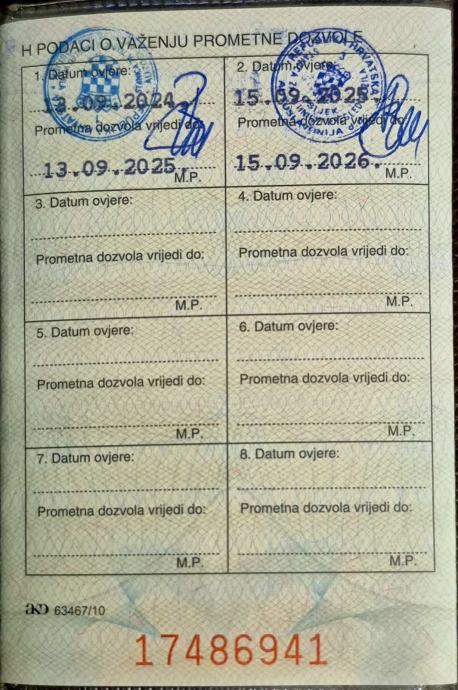 H PODACI O VAŽENJU PROMETNE DOZVOLE
1. Datum ovjere:
3.09.2024.
Prometna dozvola vrijedi do:
13.09.2025.
M.P.
2. Datum ovjere:
15.09.2025.
Prometna dozvola vrijedi do:
15.09.2026.
M.P.
3. Datum ovjere:
Prometna dozvola vrijedi do:
M.P.
4. Datum ovjere:
Prometna dozvola vrijedi do:
M.P.
5. Datum ovjere:
Prometna dozvola vrijedi do:
M.P.
6. Datum ovjere:
Prometna dozvola vrijedi do:
M.P.
7. Datum ovjere:
Prometna dozvola vrijedi do:
M.P.
8. Datum ovjere:
Prometna dozvola vrijedi do:
M.P.
AKD 63467/10
17486941